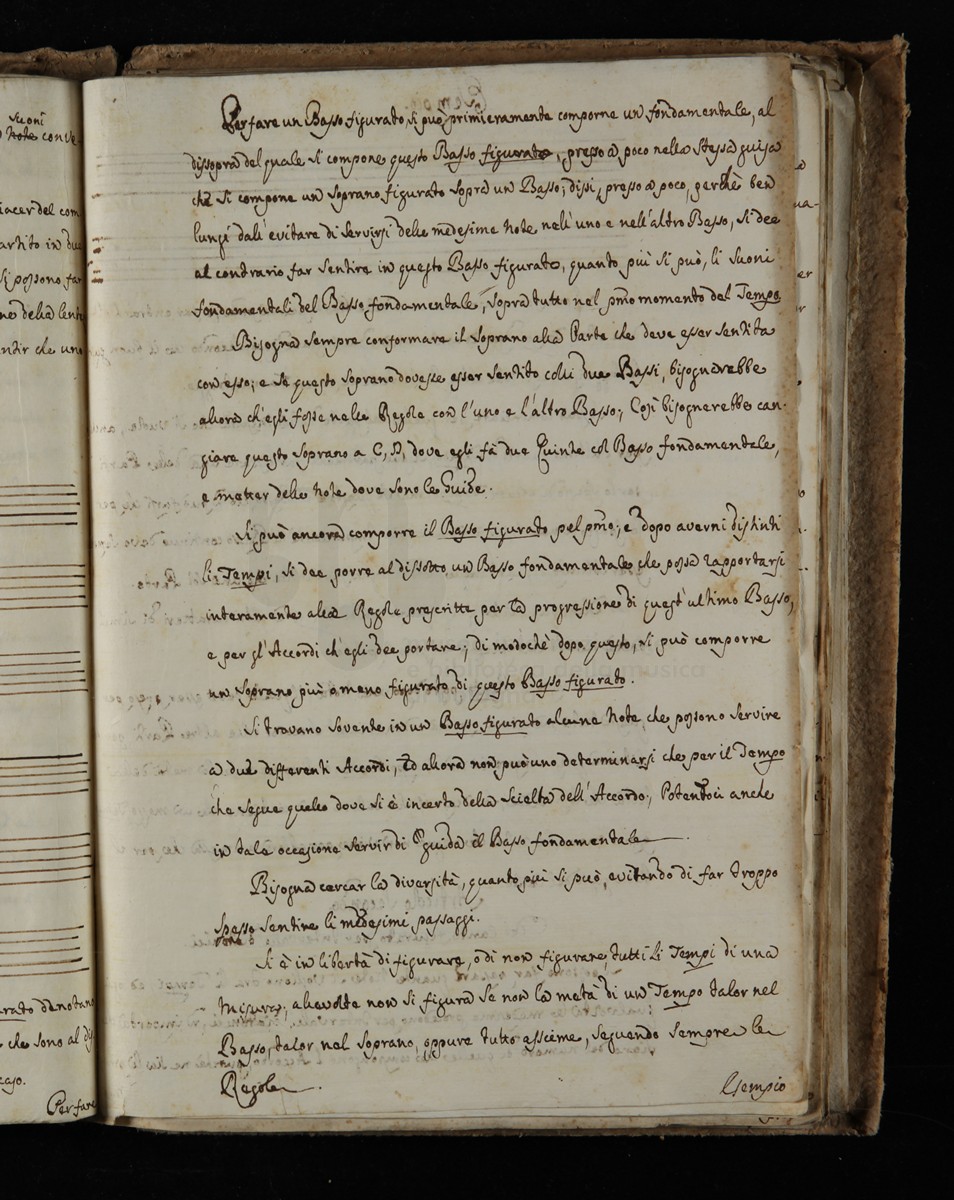 suoni
note conve
iacer del com
artito in due
si possono far
ne della lent
ntir che uno
rato denotano
che sono al di
caso.
Perfare
Per fare un Basso figurato, si può primieramente comporne un fondamentale, al
dissopra del quale si compone questo Basso figurato, presso a poco nella stessa guisa
che si compone un Soprano figurato sopra un Basso; dissi, presso a poco, perchè ben
lungi dall'evitare di servirsi delle medesime Note nell'uno e nell'altro Basso, si dee
al contrario far sentire in questo Basso figurato, quanto più si può, li Suoni
fondamentali del Basso fondamentale, sopra tutto nel pmo momento del Tempo
Bisogna sempre conformare il Soprano alla Parte che deve esser sentita
con esso; e se questo Soprano dovesse esser sentito colli due Bassi, bisognerebbe
allora ch'egli fosse nelle Regole con l'uno e l'altro Basso; Così bisognerebbe can-
giare questo Soprano a C, D, dove egli fà due Quinte col Basso fondamentale,
e metter delle Note dove sono le Guide.
Si può ancora comporre il Basso figurato pel pmo; e dopo averni distinti
li Tempi, si dee porre al dissotto un Basso fondamentale che possa rapportarsi
interamente alle Regole prescritte per la progressione di quest'ultimo Basso,
e per gl'Accordi ch'egli dee portare; di modochè dopo questo, si può comporre
un Soprano più o meno figurato di questo Basso figurato.
Si trovano sovente in un Basso figurato alcune Note, che possono servire
a due differenti Accordi, ed allora non può uno determinarsi che per il Tempo
che segue quello dove si è incerto della scielta dell'Accordo; Potendoci anche
in tale occasione servir di guida il Basso fondamentale.
Bisogna cercar la diversità, quanto più si può, evitando di far troppo
spesso sentire li medesimi passaggi.
Si è in libertà di figurare, o di non figurare, tutti li Tempi di una
Misura; allevolte non si figura se non la metà di un Tempo talor nel
Basso, talor nel Soprano, oppure tutto assieme, seguendo sempre le
Regole.
Esempio